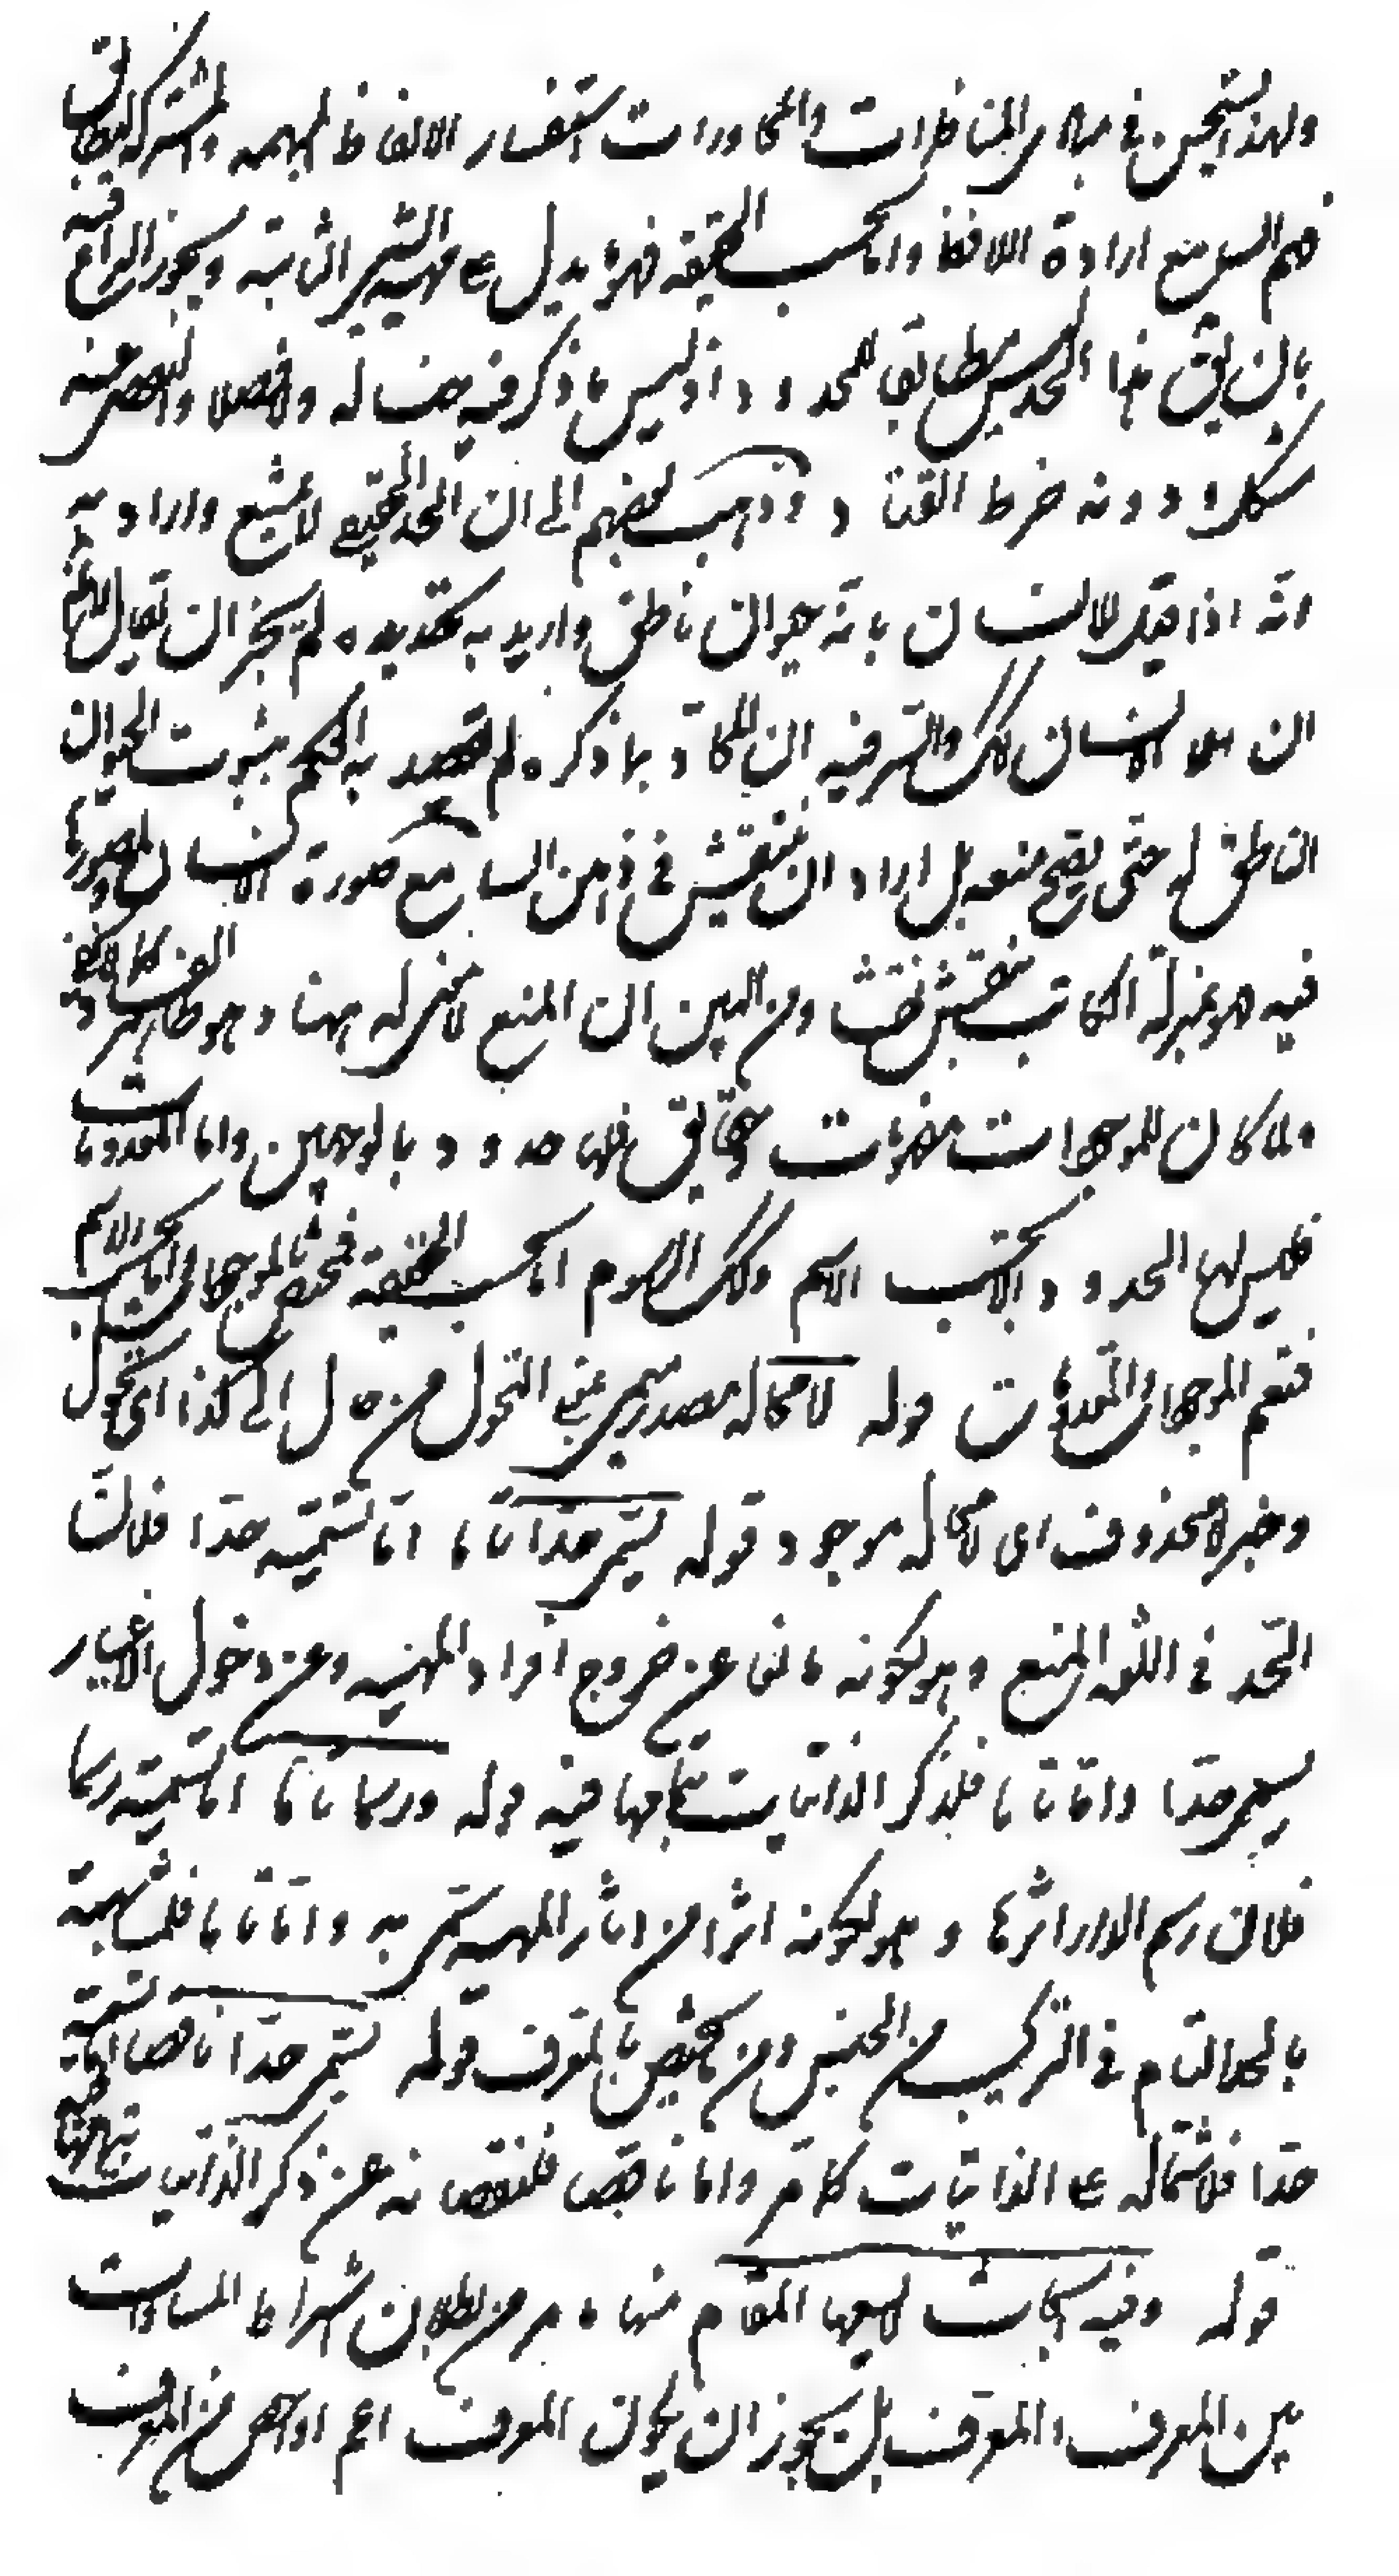 ولهذا يستحسن في مبادي المناظرات والمحاورات استفسار الالفاظ المبهمه والمشتركه ليطابق
فهم السامع ارادة اللافظ واما بحسب الحقيقه فهو يدل على مهية الشيء الثابتة ويجوز النزاع فيه
بان يق هذا الحد ليس مطابقا للمحدود اذ ليس ما ذكر فيه جنسا له ولا فصلا والتفصي عنه
مشكل ودونه خرط القتاد وذهب بعضهم الى ان الحد الحقيقي لا يمنع واراد به
انه اذا قيل الانسان بانه حيوان ناطق واريد به تحديده لم يجز ان يقال لا نم
ان الانسان كك والسر فيه ان الحاد بما ذكره لم يقصد به الحكم بثبوت الحيوان
الناطق له حتى يصح منعه بل اراد ان ينتقش في ذهن السامع صورة الانسان
فيه هو بمنزلة الكاتب ينقش نقشا ومن البين ان المنع لا معنى له ههنا وهو ظاهر
ولما كان للموجودات مفهومات وحقايق فلها حدود بالوجهين واما المعدومات
فليس لها الحدود الا بحسب الاسم وكك الرسوم اما بحسب الحقيقة فمختص بالموجودات واما بحسب الاسم
فتعم الموجودات والمعدومات قوله لا محالة مصدر ميمي بمعنى التحول من حال الى كذا اى تحول
وخبره محذوف اى لا محاله موجود قوله يسمى حدا تاما اما تسميته حدا فلان
الحد في اللغه المنع وهو لكونه مانعا عن خروج افراد المهيه وعن دخول الاغيار
يسمى حدا واما تاما فلذكر الذاتيات بتمامها فيه قوله ورسما تاما اما تسميته رسما
فلان رسم الدار اثرها وهو لكونه اثرا من اثار المهيه يسمى به واما تاما فلمشابهته
بالحد التام في التركيب من الجنس ومن مختص بالمعرف قوله يسمى حدا ناقصا اما تسميته
حدا فلاشتماله على الذاتيات كما مر واما ناقص فلنقصانه عن ذكر الذاتيات بتمامها فيه
قوله وفيه ابحاث لا يسعها المقام منها ما مر من بطلان اشتراط المساوات
بين المعرف والمعرف بل يجوز ان يكون المعرف اعم او اخص من المعرف